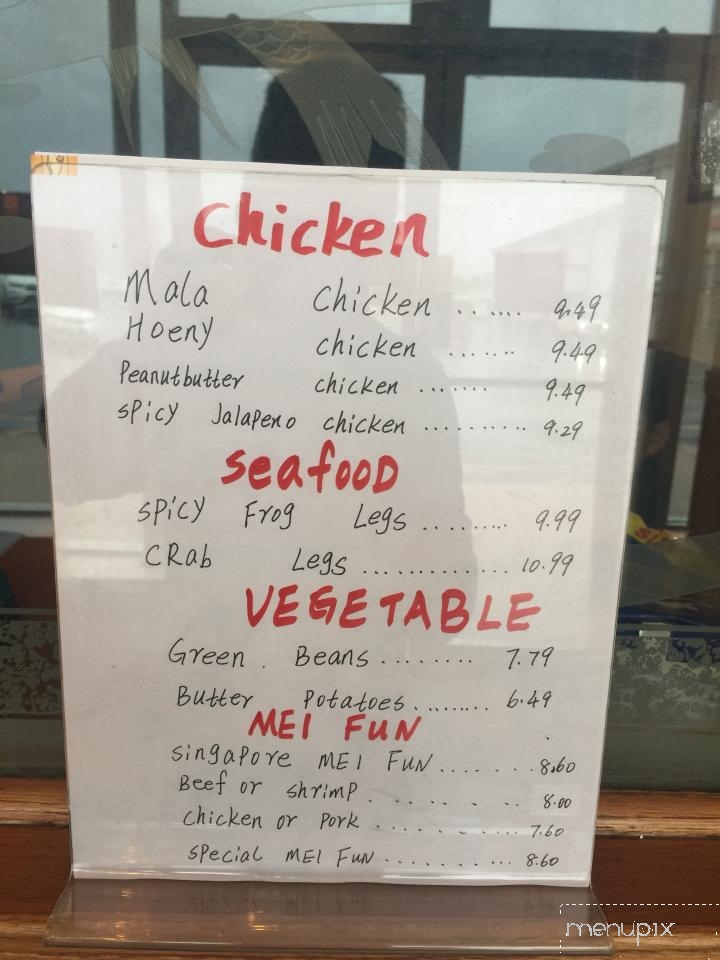 Chicken
Mala Chicken ...... 9.49
Hoeny chicken ....... 9.49
Peanutbutter chicken ....... 9.49
spicy Jalapeno chicken .......... 9.29
seafood
spicy Frog Legs ......... 9.99
CRab Legs ............. 10.99
VEGETABLE
Green . Beans ........ 7.79
Butter Potatoes ........ 6.49
MEI FUN
singapore MEI FUN ....... 8.60
Beef or shrimp ...... 8.00
chicken or Pork .......... 7.60
special MEI FUN .......... 8.60
menupix